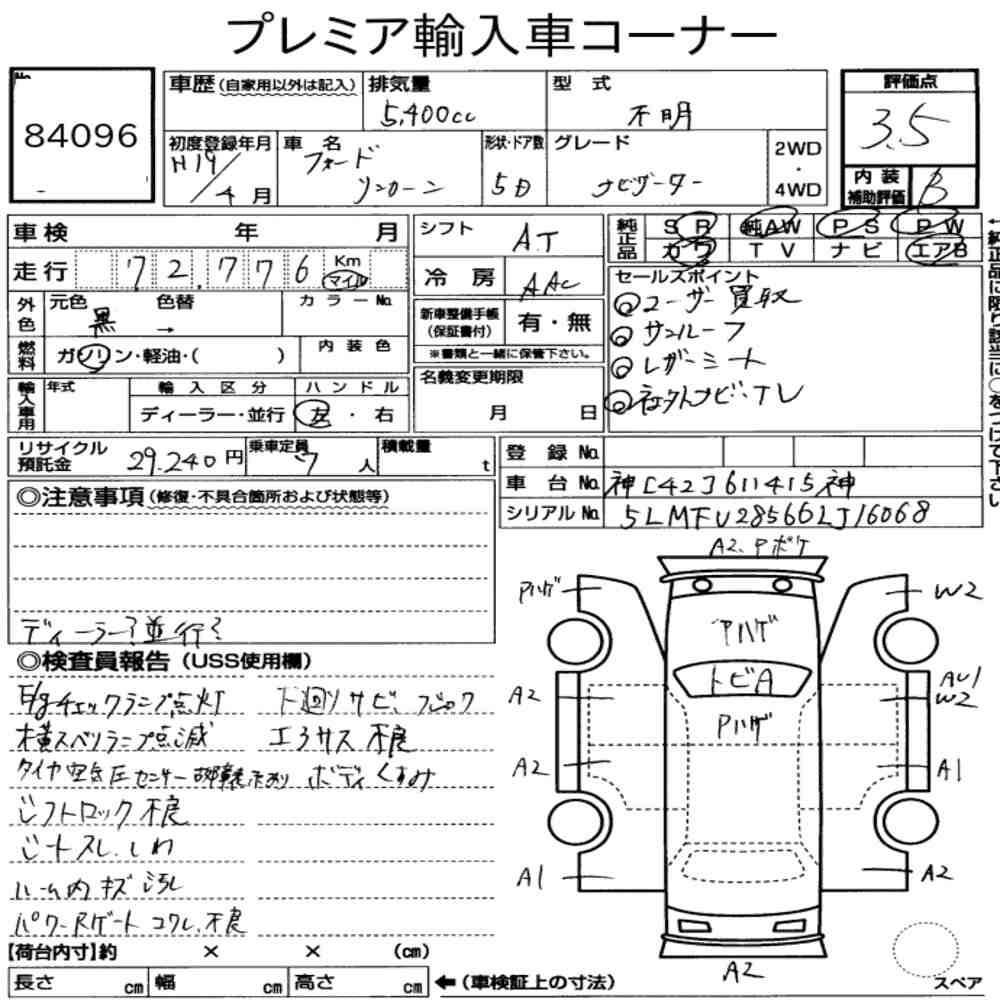 プレミア輸入車コーナー
No.
84096
車歴(自家用以外は記入)
排気量
5,400cc
型式
不明
評価点
3.5
初度登録年月
H19/4月
車名
フォード
リンカーン
形状・ドア数
5D
グレード
ナビゲーター
2WD
・
4WD
内装
補助評価
B
車検 年 月
走行 72,776 Km マイル
外色
元色
黒
色替
→
カラーNo.
燃料
ガソリン・軽油・( )
内装色
輸入車用
年式
輸入区分
ディーラー・並行
ハンドル
左・右
シフト
AT
冷房
AAC
新車整備手帳
(保証書付)
有・無
※書類と一緒に保管下さい。
名義変更期限
月 日
純正品
SR 純AW PS PW
カワ TV ナビ エアB
←純正品に限り該当に○をつけて下さい
セールスポイント
◎ユーザー買取
◎サンルーフ
◎レザーシート
◎社外ナビ・TV
リサイクル
預託金
29,240円
乗車定員
7人
積載量
t
登録No.
車台No. 神[42]611415神
シリアルNo. 5LMFU28566LJ16068
◎注意事項(修復・不具合箇所および状態等)
ディーラー?並行?
◎検査員報告(USS使用欄)
E/gチェックランプ点灯
横スベリランプ点滅
タイヤ空気圧センサー故障表示あり
シフトロック不良
シートスレ、しわ
ルーム内キズ汚れ
パワーRゲート コワレ、不良
下廻りサビ、
エアサス不良
ボディくすみ
A2、Pボケ
Pハゲ
W2
アハゲ
トビA
Pハゲ
A2
AU1
W2
A2
A1
A1
A2
A2
スペア
【荷台内寸】約 × × (cm)
長さ cm 幅 cm 高さ cm ←(車検証上の寸法)